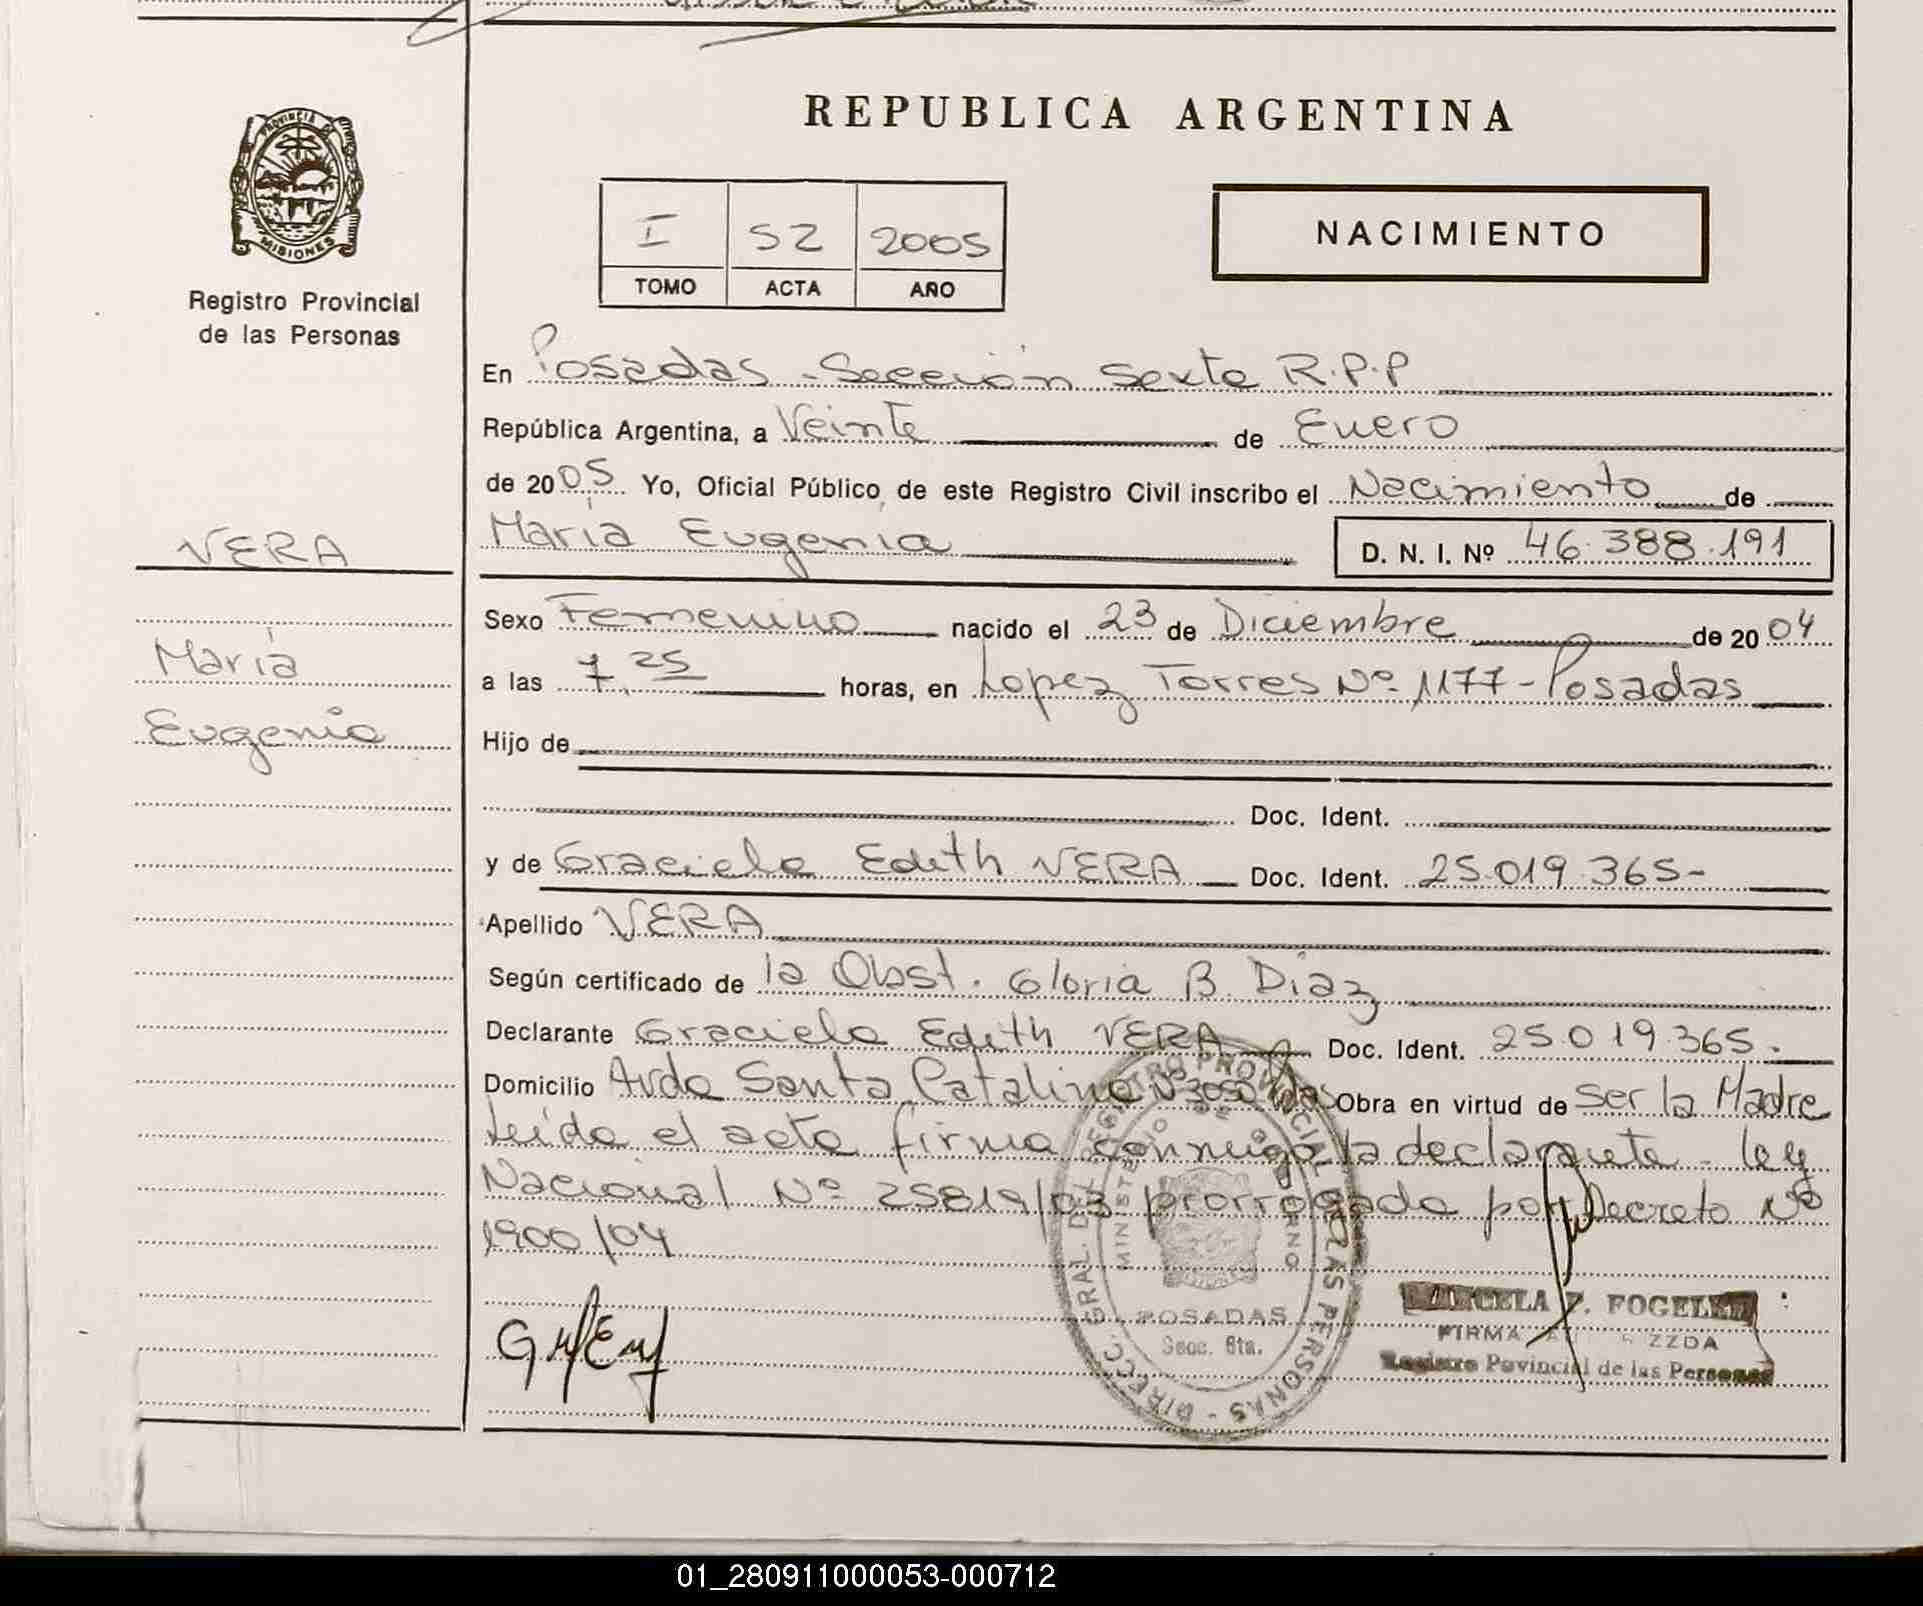 REPUBLICA ARGENTINA
PROVINCIA DE
MISIONES
Registro Provincial
de las Personas
I 52 2005
TOMO ACTA AÑO
NACIMIENTO
En Posadas - Sección Sexta R.P.P
República Argentina, a Veinte de Enero
de 2005 Yo, Oficial Público de este Registro Civil inscribo el Nacimiento de
María Eugenia D. N. I. Nº 46.388.191
VERA
María
Eugenia
Sexo Femenino nacido el 23 de Diciembre de 2004
a las 7,25 horas, en Lopez Torres Nº 1177 - Posadas
Hijo de
Doc. Ident.
y de Graciela Edith VERA Doc. Ident. 25.019.365-
Apellido VERA
Según certificado de la Obst. Gloria B. Diaz
Declarante Graciela Edith VERA Doc. Ident. 25.019.365.
Domicilio Avda Santa Catalina Nº 3050 Obra en virtud de ser la Madre
Leída el acta firma conmigo la declarante - ley
Nacional Nº 25819/03 prorrogada por Decreto Nº
1900/04
DIRECC. GRAL. DEL REGISTRO PROVINCIAL DE LAS PERSONAS
MINISTERIO DE GOBIERNO
POSADAS
Secc. 6ta.
FOGELER
FIRMA
Registro Povincial de las Personas
01_280911000053-000712